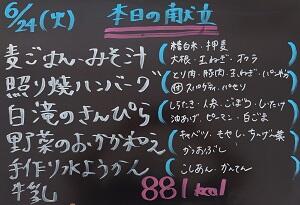 6/24(火) 本日の献立
麦ごはん・みそ汁
精白米・押麦
大根・玉ねぎ・オクラ
照り焼ハンバーグ
とり肉・豚肉・玉ねぎ・パン粉
付 スパゲティ・パセリ
白滝のきんぴら
しらたき・人参・ごぼう・しいたけ
油あげ・ピーマン・白ごま
野菜のおかか和え
キャベツ・もやし・ツナ・
かつおぶし
手作り水ようかん
こしあん・かんてん
牛乳
881kcal